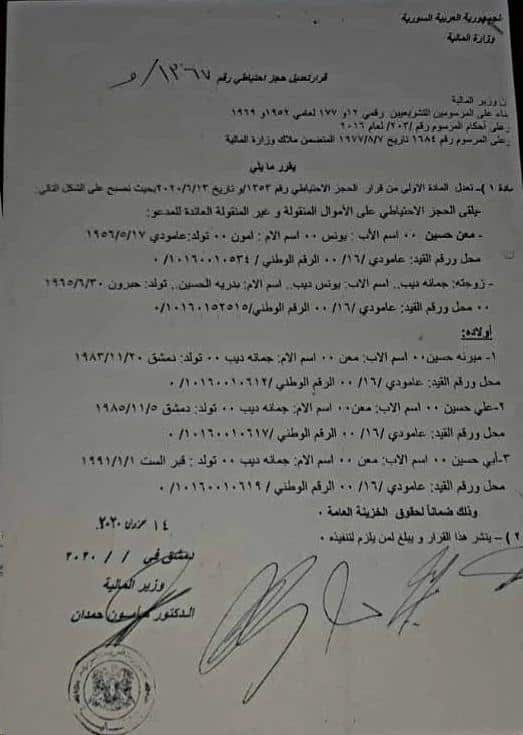 الجمهورية العربية السورية
وزارة المالية
قرار تعديل حجز احتياطي رقم ١٣٦٧/و
ن وزير المالية
بناء على المرسومين التشريعيين رقمي ١٢ و ١٧٧ لعامي ١٩٥٢ و ١٩٦٩
وعلى أحكام المرسوم رقم /٢٠٣/ لعام ٢٠١٦
وعلى المرسوم رقم ١٦٨٤ تاريخ ١٩٧٧/٨/٧ المتضمن ملاك وزارة المالية
يقرر ما يلي
مادة ١)ـ تعدل المادة الاولى من قرار الحجز الاحتياطي رقم ١٣٥٣/و تاريخ ٢٠٢٠/٦/١٣ بحيث تصبح على الشكل التالي:
-يلقى الحجز الاحتياطي على الأموال المنقولة و غير المنقولة العائدة للمدعو:
- معن حسين ٠٠ اسم الأب : يونس ٠٠ اسم الام : امون ٠٠ تولد: عامودي ١٩٥٦/٥/١٧
محل ورقم القيد: عامودي /١٦/ ٠٠ الرقم الوطني /١٠١٦٠٠١٠٥٣٤/ ٠
- زوجته: جمانه ديب.. اسم الاب: يونس ديب.. اسم الام: بدريه الحسين.. تولد: حبرون ١٩٦٥/٦/٣٠
٠٠ محل ورقم القيد: عامودي /١٦/ ٠٠ الرقم الوطني/١٠١٦٠١٥٢٥١٥/ ٠
أولاده:
١- ميرنه حسين ٠٠ اسم الاب: معن ٠٠ اسم الام: جمانه ديب ٠٠ تولد: دمشق ١٩٨٣/١١/٢٠
محل ورقم القيد: عامودي /١٦/ ٠٠ الرقم الوطني /١٠١٦٠٠١٠٦١٢/ ٠
٢-علي حسين ٠٠ اسم الاب: معن ٠٠ اسم الام: جمانه ديب ٠٠ تولد: دمشق ١٩٨٥/١١/٥
محل ورقم القيد: عامودي /١٦/ ٠٠ الرقم الوطني /١٠١٦٠٠١٠٦١٧/ ٠
٣-أبي حسين ٠٠ اسم الاب: معن ٠٠ اسم الام: جمانه ديب ٠٠ تولد : قبر الست ١٩٩١/١/١
محل ورقم القيد: عامودي /١٦/ ٠٠ الرقم الوطني /١٠١٦٠٠١٠٦١٩/ ٠
وذلك ضماناً لحقوق الخزينة العامة ٠
٢ )ـ ينشر هذا القرار و يبلغ لمن يلزم لتنفيذه ٠
١٤ حزيران ٢٠٢٠
دمشق في / / ٢٠٢٠
وزير المالية
الدكتور مأمون حمدان